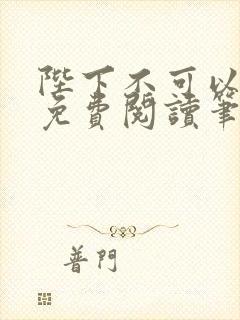 陛下不可以
免費閱讀筆
普門